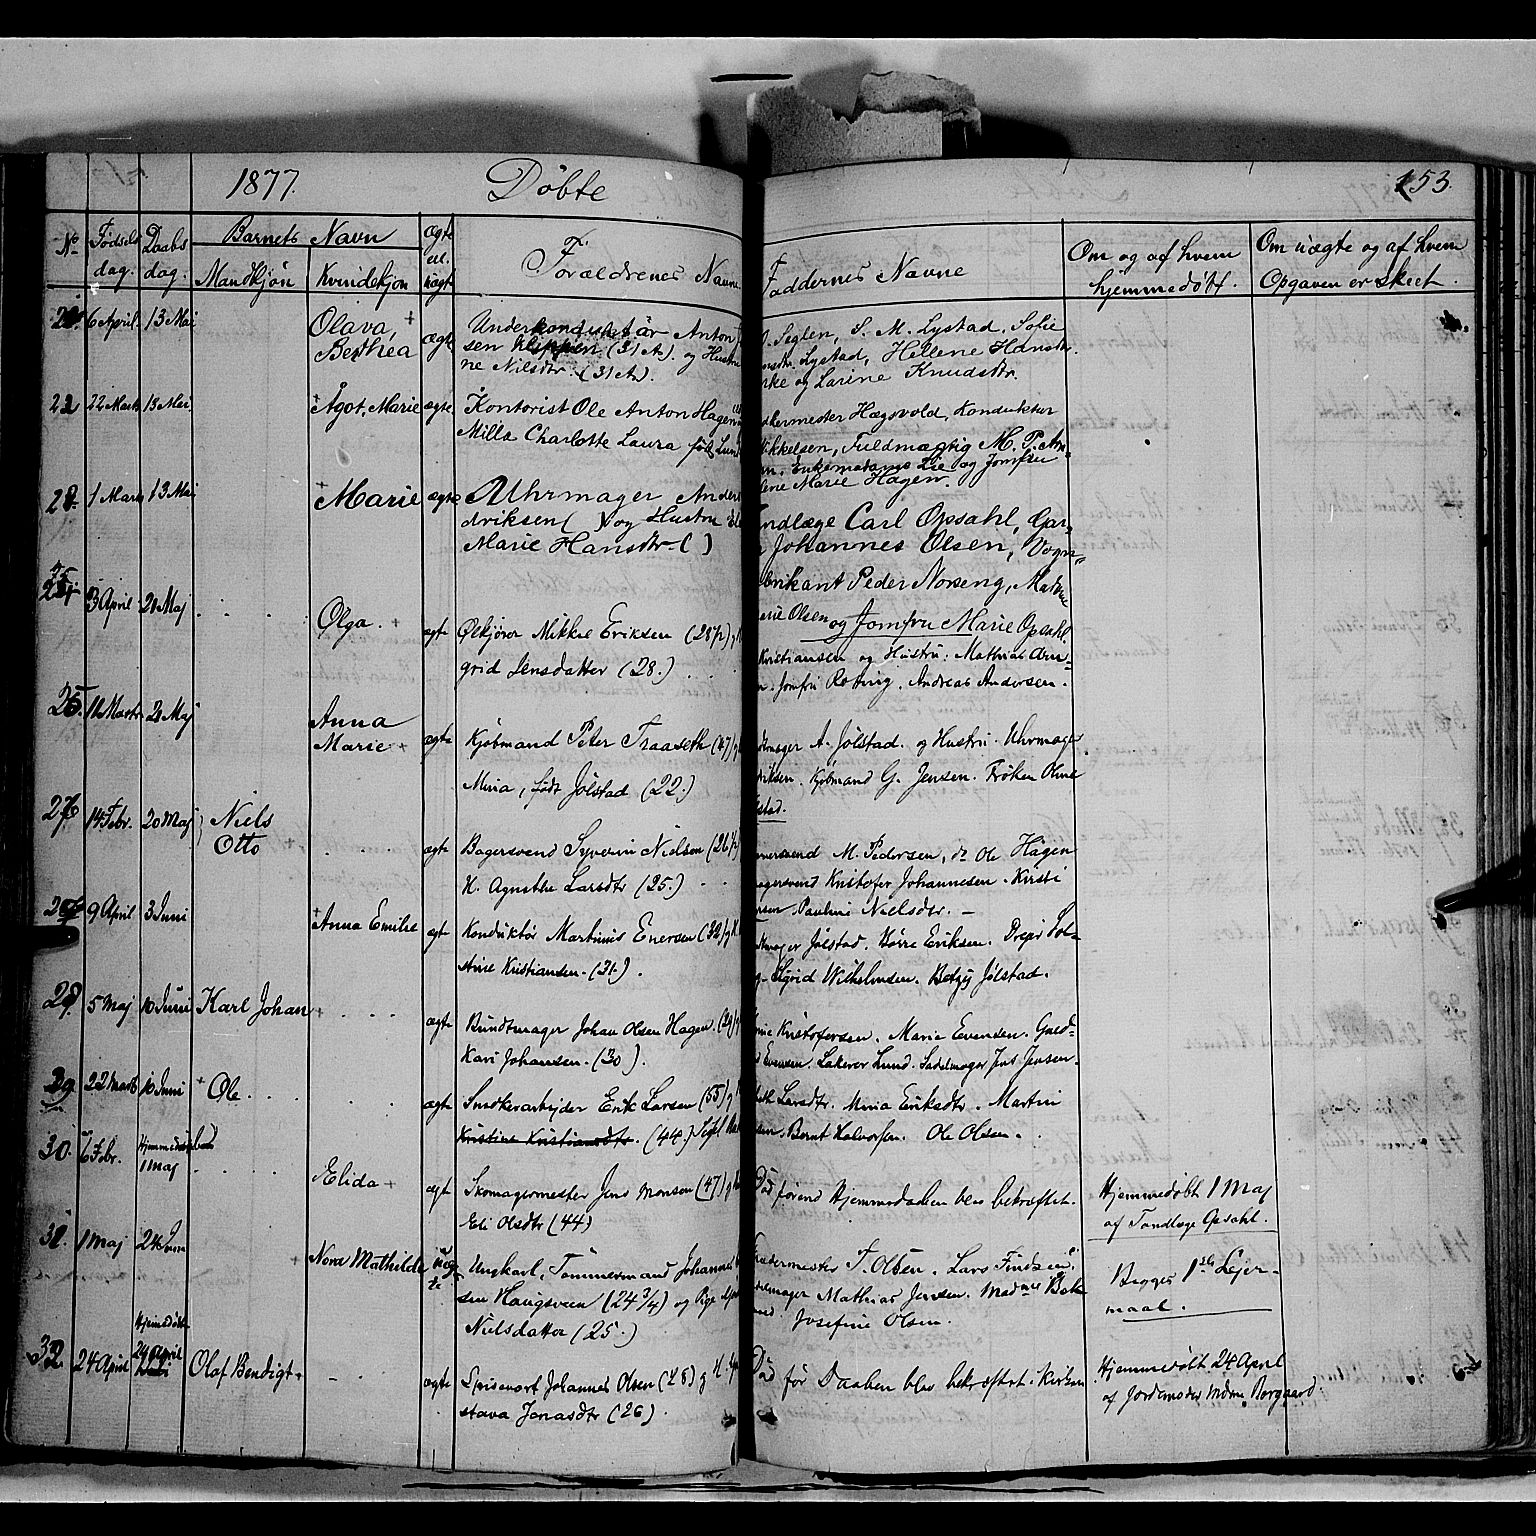 1877.
Döbte
153.
No
Födsels
dag.
Daabs
dag.
Barnets Navn
Mandkjön
Kvindekjön
Ægte
el.
uægte
Forældrenes Navne
Faddernes Navne
Om og af hvem
hjemmedöbt.
Om uægte og af hvem
Opgaven er skeet.
6 April. 13 Mai
Olava,
Berthea
ægte
Underkonduktör Anton
sen Klippen (31 A.). og Hustru
ne Nilsdtr. (31 A.).
Seglen, S. M. Lystad, Sofie
Lystad, Hellene Hansdtr.
og Larine Knudsdtr.
22 Marts 13 Mai
Ågot, Marie
ægte
Kontorist Ole Anton Hagen
Milla Charlotte Laura föd Lund
Hægsvold, Konduktur
Mikkelsen, Fuldmægtig M. P. Am-
Enkemadame Lie og Jomfru
Marie Hagen.
1 Marts 13 Mai
Marie
ægte
Uhrmager Anders
driksen ( ) og Hustru
Marie Hansdtr. ( )
Tandlæge Carl Opsahl, Gar-
Johannes Olsen, Vogn-
fabrikant Peder Noreng, Madme
Olsen og Jomfru Marie Opsahl.
3 April 20 Maj
Olga.
ægte
Ølkjörer Mikkel Eriksen (28 1/2)
grid Jensdatter (28.)
Kristiansen og Hustru. Mathias Am-
Jomfru Roting. Andreas Andersen.
25. Marts 20 Maj
Anna
Marie
ægte
Kjöbmand Peter Traaseth (47)
Miria, född Jölstad (22.)
A. Jölstad. og Hustru. Uhrmager
Kjöbmand G. Jensen. Fröken Oline
14 Febr. 20 Maj
Niels
Otto
ægte
Bagersvend Syverin Nielsen (26 1/2)
H. Agnethe Larsdtr (25.)
M. Pedersen, do Ole Hagen
Kristofer Johannesen. Kirsti
Pauline Nielsdtr. -
9 April 3 Juni
Anna Emilie
ægte
Konduktör Martinus Enersen (32)
Kristiansen. (31.)
Jölstad. Börre Eriksen. Drejer Sol-
Sigrid Wilhelmsen. Betzy Jölstad.
5 Maj 10 Juni
Karl Johan
ægte
Bundtmager Johan Olsen Hagen. (29)
Kari Johansen. (30).
Kristofersen. Marie Evensen. Guld-
Evensen. Lakerer Lund. Sadelmager Jens Jensen.
29. 22 Marts 10 Juni
Ole.
ægte
Smedkerarbejder Erik Larsen (55)
Kristine Kristiansdtr. (44.)
Larsdtr. Miria Eriksdtr. Martin
Bernt Halvorsen. Ole Olsen.
30. Febr. Hjemmedöbt
1 Maj
Elida
ægte
Skomagermester Jens Monsen (47)
Eli Olsdtr (44)
Död förend Hjemmedaaben blev bekræftet.
Hjemmedöbt 1 Maj
af Tandlæge Opsahl.
1 Maj 24 Juni
Nora Mathilde
uæg-
te
Ungkarl, Tömmermand Johannes
sen Haugsveen (24 3/4) og Pige
Nielsdatter (25.)
T. Olsen. Lars Findsen.
Mathias Jensen. Madme Bak-
Josefine Olsen.
Begges 1ste Lejer-
maal.
32. 24 April
Hjemmedöbt
24 April
Olaf Bendigt
ægte
Spisevert Johannes Olsen (28) og H.
stava Jonasdtr (26).
Död för Daaben blev bekræftet i Kirken
Hjemmedöbt 24 April
af Jordemoder Mdme Borgaard.